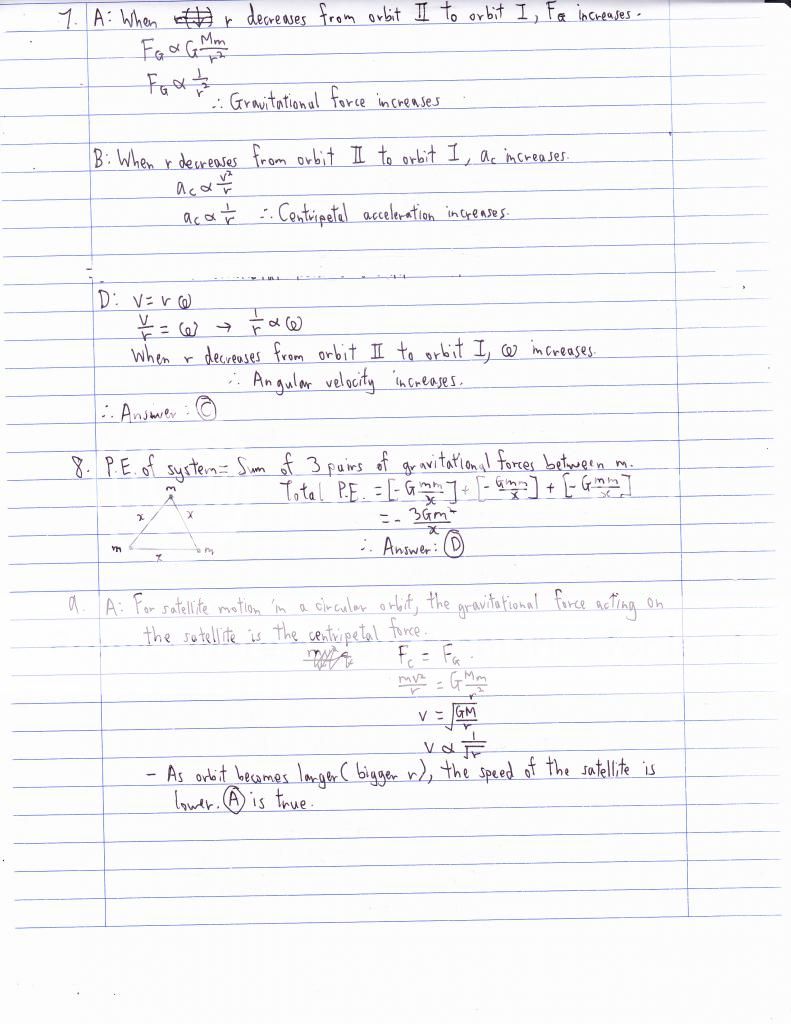 7. A: When r decreases from orbit II to orbit I, FG increases.
FG ∝ G Mm/r²
FG ∝ 1/r²
∴ Gravitational force increases
B: When r decreases from orbit II to orbit I, ac increases.
ac ∝ v²/r
ac ∝ 1/r ∴ Centripetal acceleration increases.
D: V = r ω
V/r = ω → 1/r ∝ ω
When r decreases from orbit II to orbit I, ω increases.
∴ Angular velocity increases.
∴ Answer: C
8. P.E. of system = Sum of 3 pairs of gravitational forces between m.
Total P.E. = [-G mm/x] + [-Gmm/x] + [-G mm/x]
= - 3Gm²/x
∴ Answer: D
m
x x
m x m
9. A: For satellite motion in a circular orbit, the gravitational force acting on
the satellite is the centripetal force.
Fc = FG.
mv²/r = G Mm/r²
v = √GM/r
v ∝ 1/√r
- As orbit becomes larger (bigger r), the speed of the satellite is
lower. A is true.